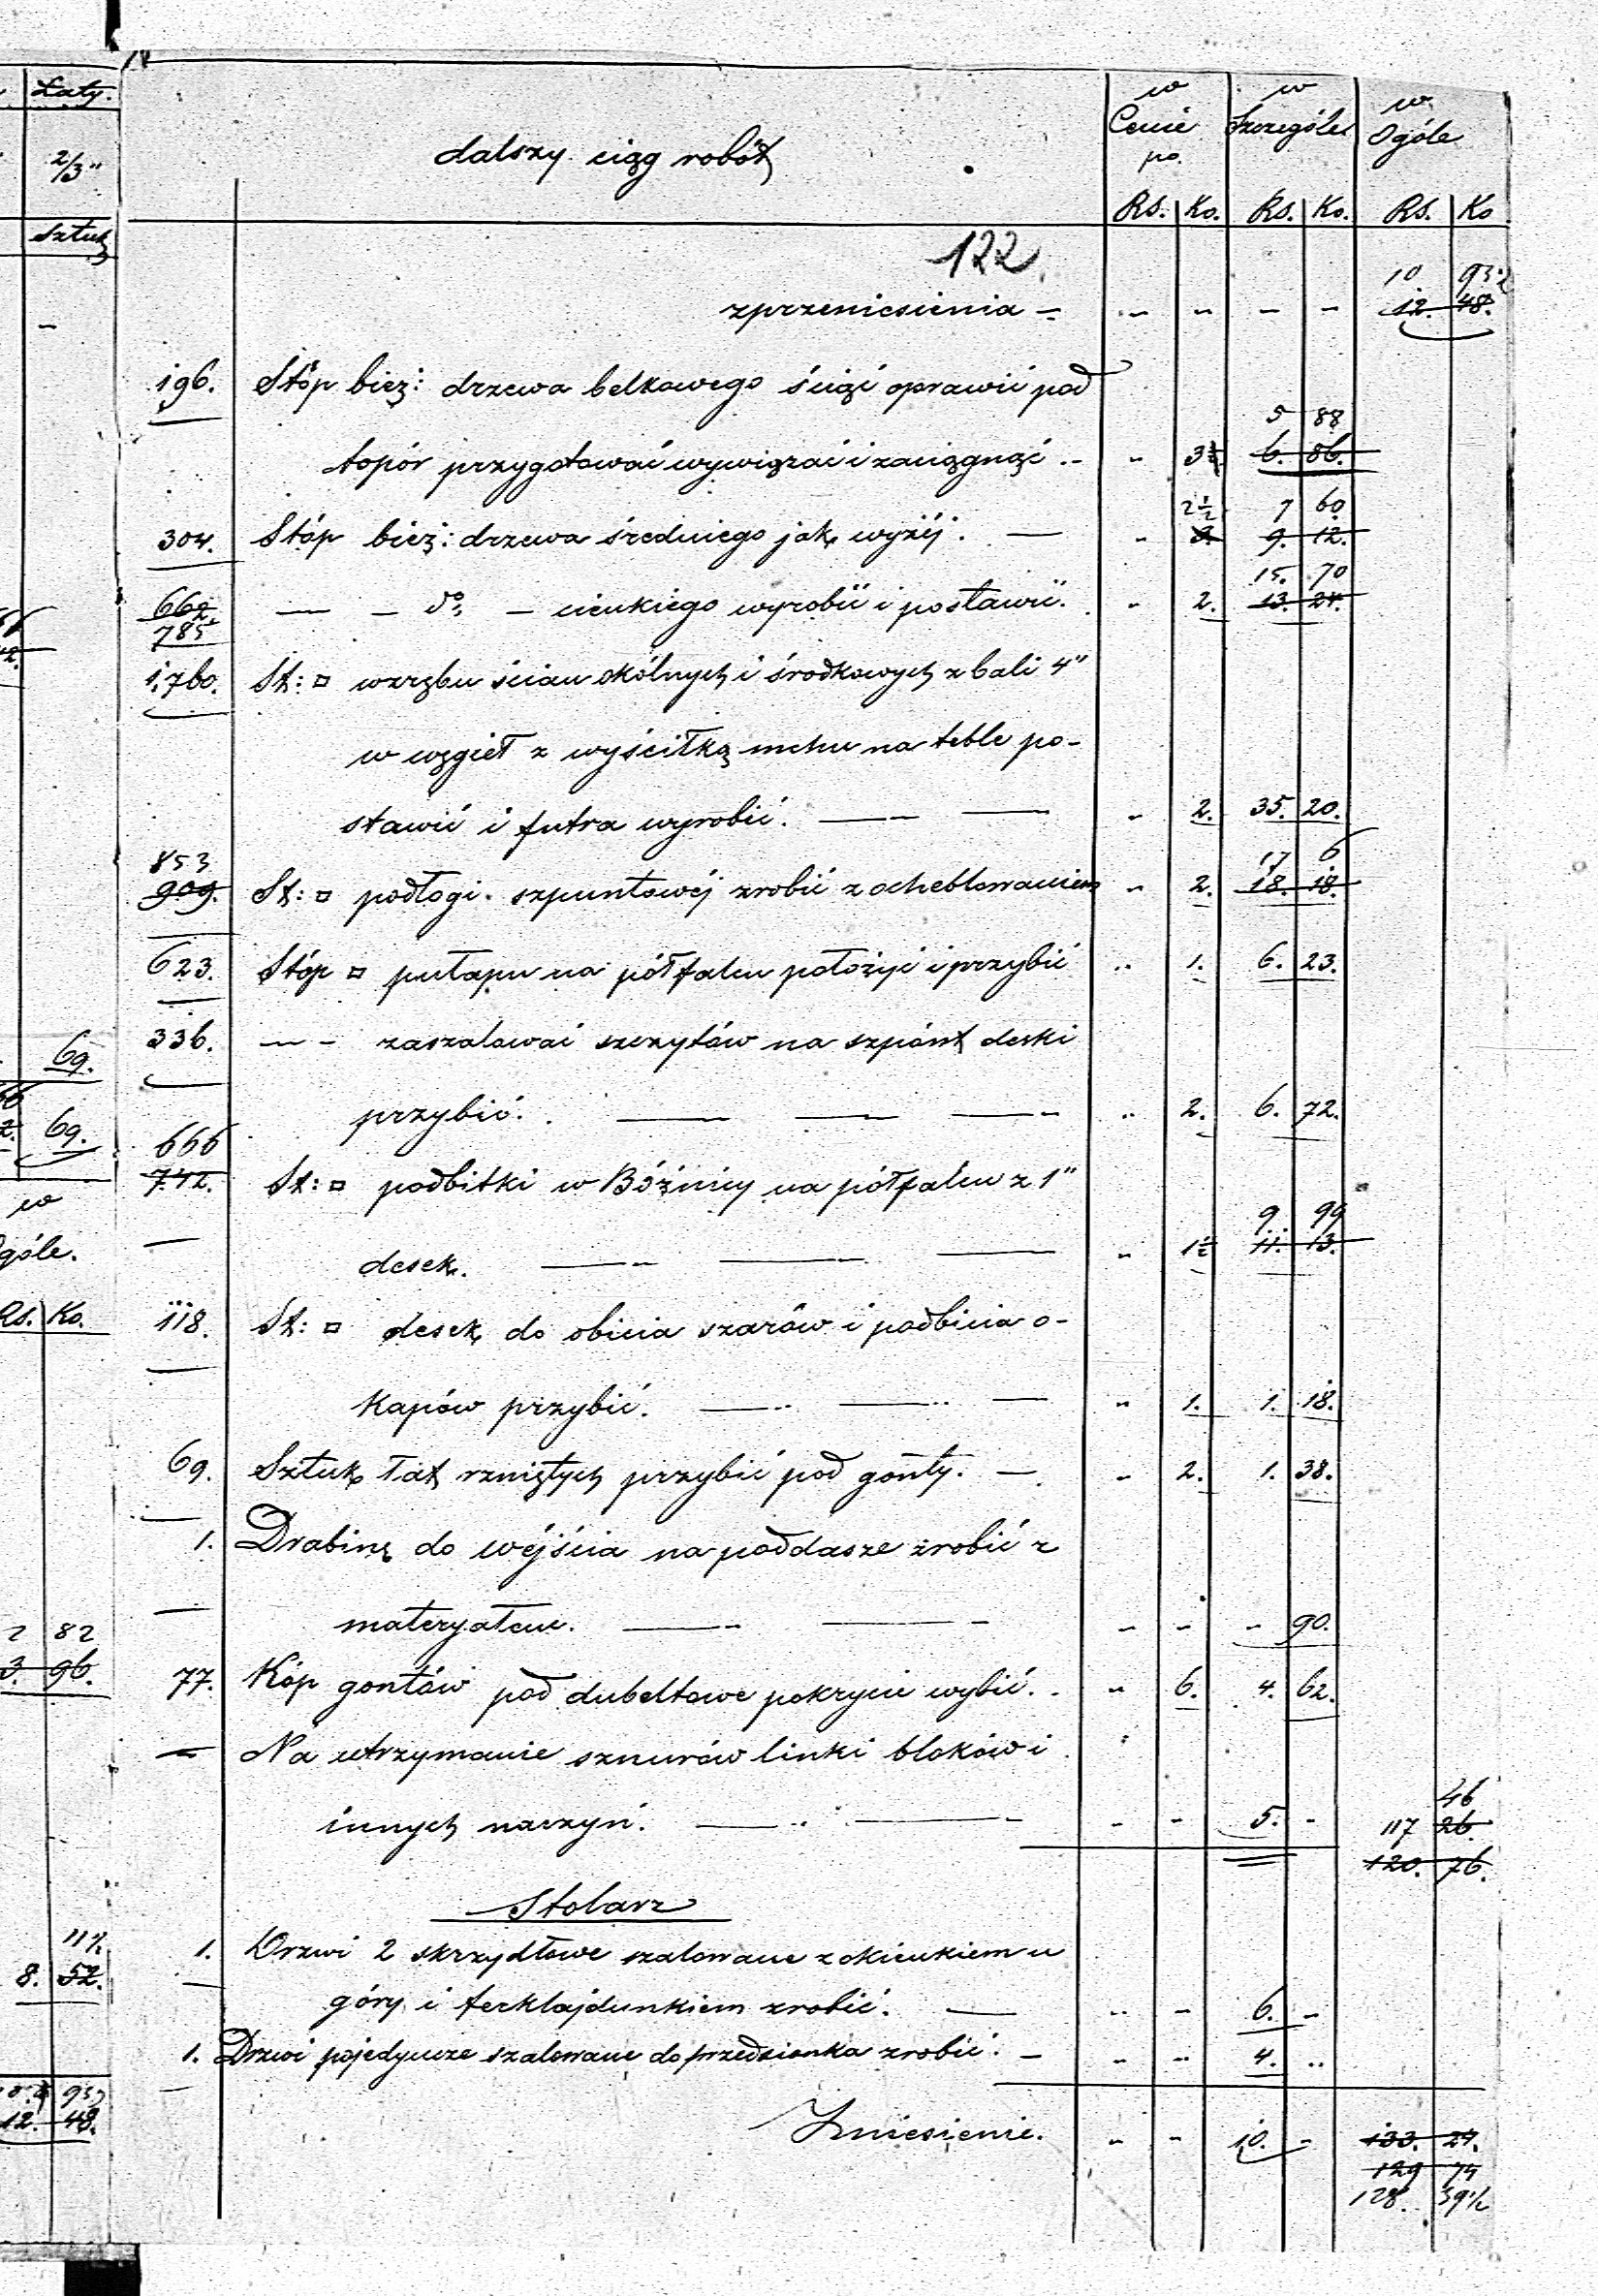 Łaty.
2/3"
sztuk
dalszy ciąg robót
w Cenie po.
w Szczególe
w Ogóle
Rs. Ko. Rs. Ko. Rs. Ko
122.
10 93½
zprzeniesienia - - - - - 12. 48.
196. Stóp bież: drzewa belkowego ściąć oprawić pod
5 88
topór przygotować wywiązać i zaciągnąć .. - 3½ 6. 86.
2½ 7 60
304. Stóp bież: drzewa średniego jak wyżéj. — - 3. 9. 12.
15. 70
662 — - do - cienkiego wyrobić i postawić. - 2. 13. 24.
785
1,760. St: □ wzrębu ścian okólnych i środkowych z bali 4"
w węgieł z wyściłką mchu na teble po-
stawić i futra wyrobić. — — - 2. 35. 20.
853 17 6
909. St: □ podłogi szpuntowéj zrobić z oheblowaniem - 2. 18. 18.
623. Stóp □ pułapu na półfalcu położyć i przybić .. 1. 6. 23.
336. — - zaszalować szczytów na szpónt deski
przybić. — — — .. 2. 6. 72.
666
742. St: □ podbitki w Bóźnicy na półfalcu z 1"
9. 99
desek. — — — - 1½ 11. 13.
118. St: □ desek do obicia szarów i podbicia o-
kapów przybić. — — — - 1. 1. 18.
69. Sztuk łat rzniętych przybić pod gonty. — - 2. 1. 38.
1. Drabinę do wéjścia na poddasze zrobić z
materyałem. — — - - - 90.
77. Kóp gontów pod dubeltowe pokrycie wybić. - 6. 4. 62.
— Na utrzymanie sznurów linki bloków i
46
innych naczyń. — — - - 5. - 117 26.
120. 76.
Stolarz
1. Drzwi 2 skrzydłowe szalowane z okienkiem u
góry i ferklajdunkiem zrobić. — .. - 6. -
1. Drzwi pojedyncze szalowane do przedsionka zrobić. - - .. 4. ..
Zniesienie. - - 10. - 133. 24.
129 74
128. 39½
69.
69.
w
Ogóle.
Rs. Ko.
2 82
3. 96.
11½
8. 52.
12. 48.